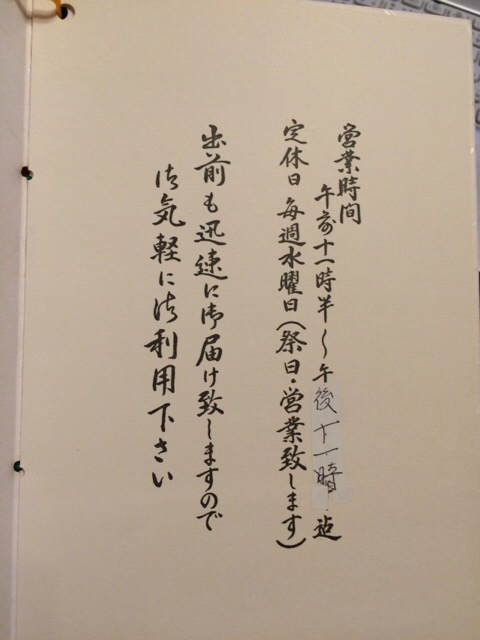 営業時間
午前十一時半〜午後十一時迄
定休日 毎週水曜日(祭日・営業致します)
出前も迅速に御届け致しますので
御気軽に御利用下さい